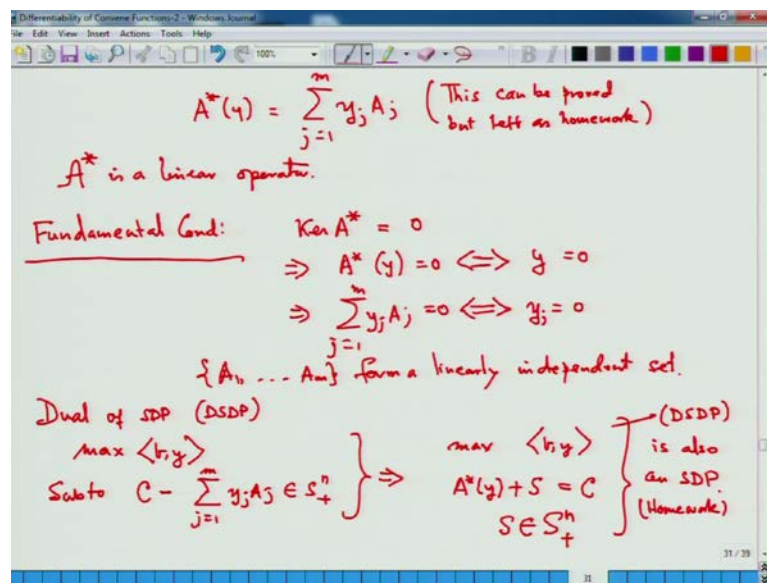 Differentiability of Convene Functions-2 - Windows Journal
File Edit View Insert Actions Tools Help
100%
A*(y) = ∑_{j=1}^{m} y_j A_j (This can be proved but left as homework)
A* is a linear operator.
Fundamental Cond: Ker A* = 0
⇒ A*(y) = 0 ⟺ y = 0
⇒ ∑_{j=1}^{m} y_j A_j = 0 ⟺ y_j = 0
{A_1, ... A_m} form a linearly independent set.
Dual of SDP (DSDP)
max <b,y>
Sub to C - ∑_{j=1}^{m} y_j A_j ∈ S^n_+ } ⇒
max <b,y>
A*(y) + S = C
S ∈ S^n_+
(DSDP)
is also
an SDP.
(Homework)
31 / 39
31